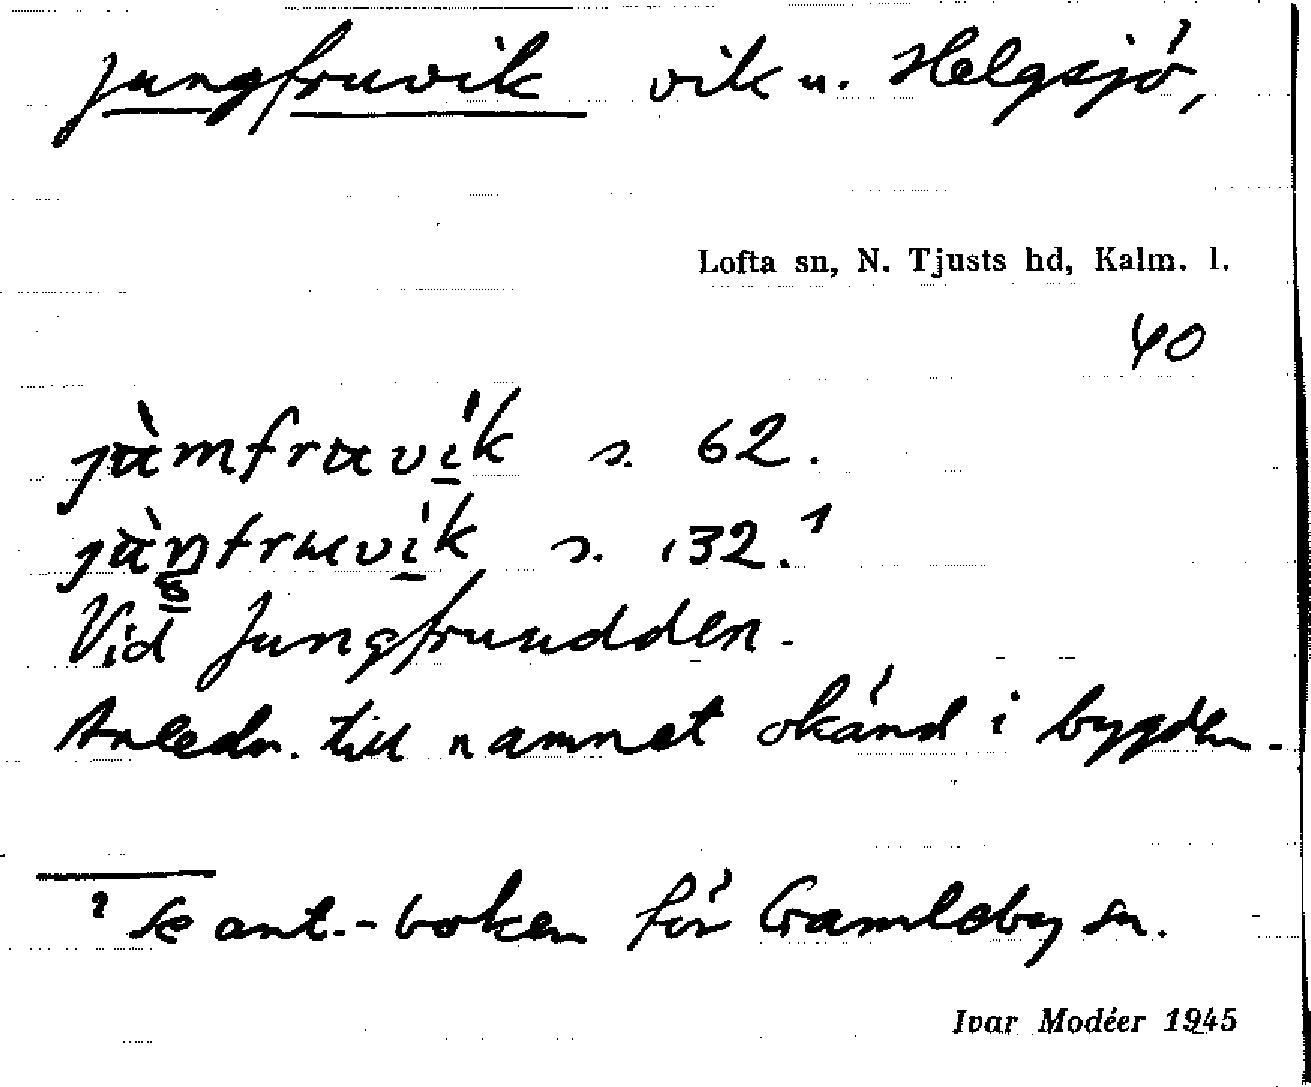 Jungfruvik vik u. Helgsjö,
Lofta sn, N. Tjusts hd, Kalm. l.
40
jùmfruvík s. 62.
jùnfruvík s. 132.¹
Vid Jungfruudden.
Anledn. till namnet okänd i bygden.
¹ Se ant.-boken för Gamleby sn.
Ivar Modéer 1945